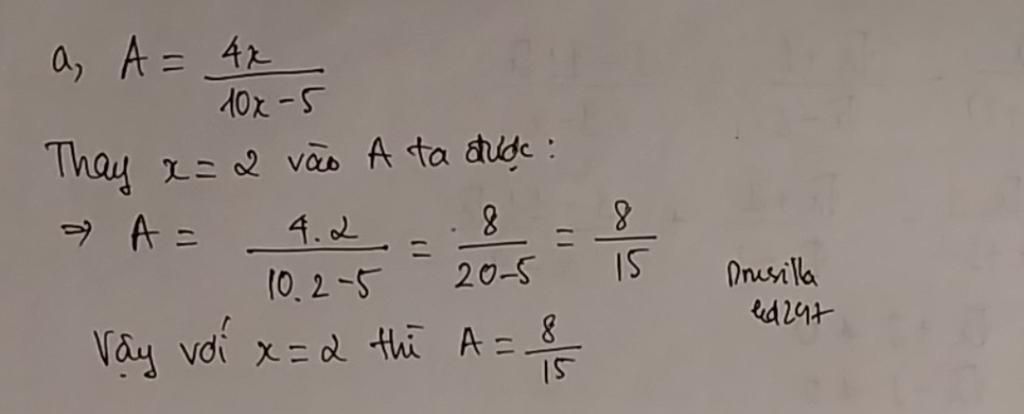 a, A = 4x / 10x - 5
Thay x = 2 vào A ta được:
⇒ A = 4.2 / 10.2 - 5 = 8 / 20 - 5 = 8 / 15
Drusilla
Vậy với x = 2 thì A = 8 / 15